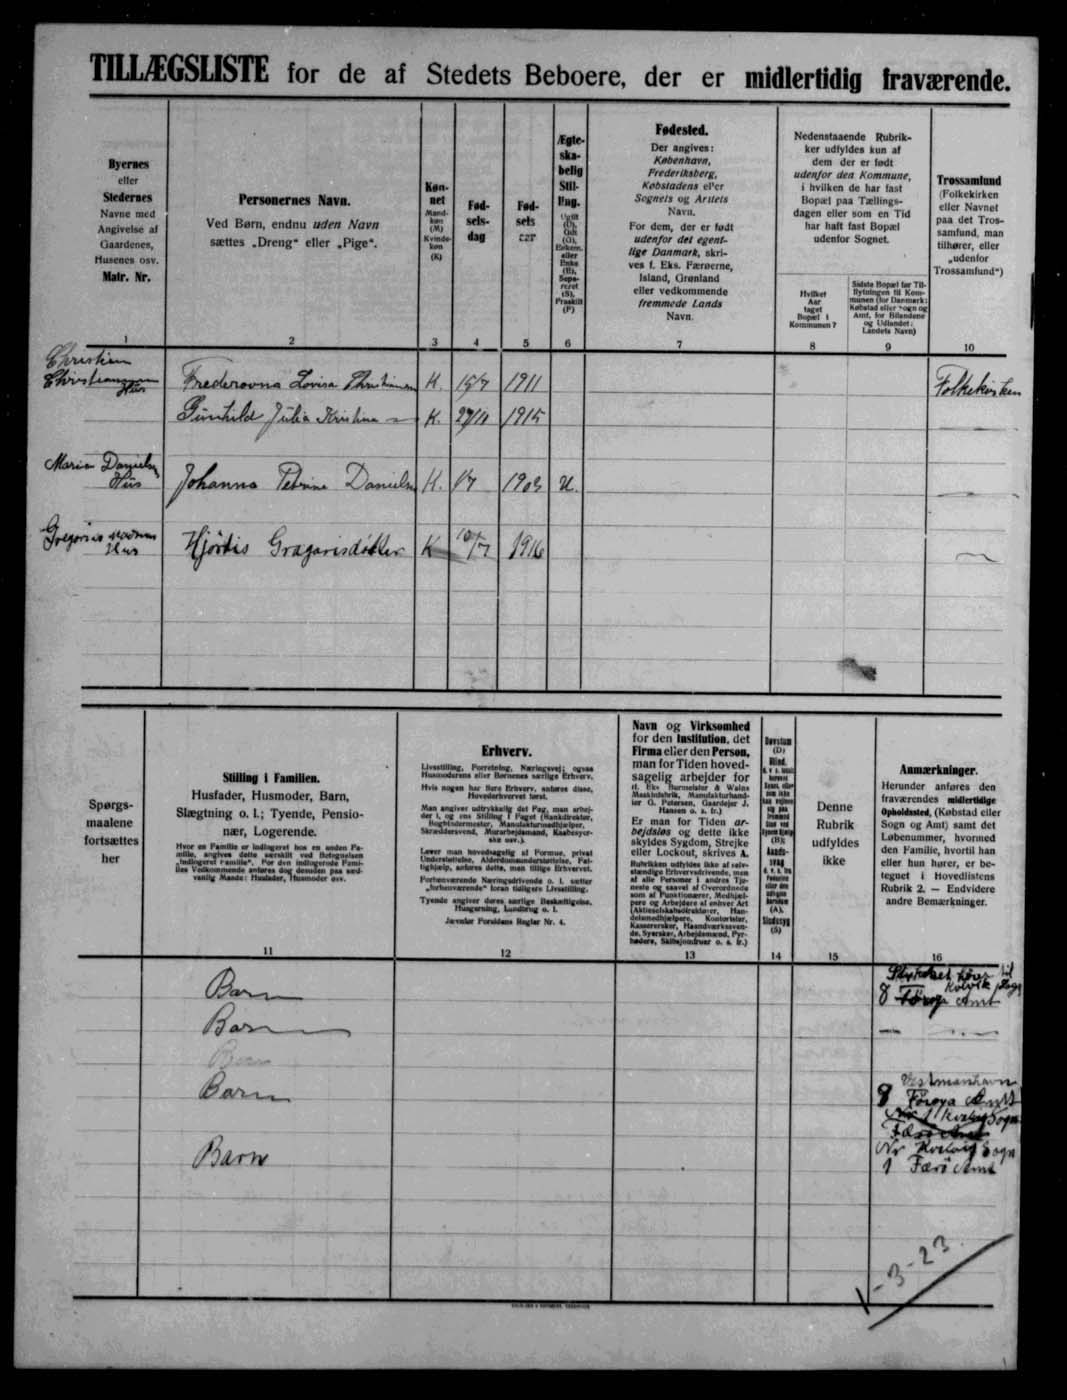 TILLÆGSLISTE for de af Stedets Beboere, der er midlertidig fraværende.
Byernes
eller
Stedernes
Navne med
Angivelse af
Gaardenes,
Husenes osv.
Matr. Nr.
Personernes Navn.
Ved Børn, endnu uden Navn
sættes „Dreng“ eller „Pige“.
Køn-
net
Mand-
køn
(M)
Kvinde-
køn
(K)
Fød-
sels-
dag
Fød-
sels
aar
Ægte-
ska-
belig
Stil-
ling.
Ugift
(U),
Gift
(G),
Enkem.
eller
Enke
(E),
Sepa-
reret
(S),
Fraskilt
(F)
Fødested.
Der angives:
København,
Frederiksberg,
Købstadens eller
Sognets og Amtets
Navn.
For dem, der er født
udenfor det egent-
lige Danmark, skri-
ves f. Eks. Færøerne,
Island, Grønland
eller vedkommende
fremmede Lands
Navn.
Nedenstaaende Rubrik-
ker udfyldes kun af
dem der er født
udenfor den Kommune,
i hvilken de har fast
Bopæl paa Tællings-
dagen eller som en Tid
har haft fast Bopæl
udenfor Sognet.
Hvilket
Aar
taget
Bopæl i
Kommunen?
Sidste Bopæl før Til-
flytningen til Kom-
munen (for Danmark:
Købstad eller Sogn og
Amt, for Bilandene
og Udlandet:
Landets Navn)
Trossamfund
(Folkekirken
eller Navnet
paa det Tros-
samfund, man
tilhører, eller
„udenfor
Trossamfund“)
1 2 3 4 5 6 7 8 9 10
Christian
Christiansen
Hus
Frederovna Lovisa Christiansen K. 1911 Folkekirken
Gunhild Julia Kristina K. 1915
Maria Danielsen
Hus
Johanna Petrina Danielsen K. 1903 U.
Gregoris
Hus
Hjördis Gragarisdötter K 10/7 1916
Spørgs-
maalene
fortsættes
her
Stilling i Familien.
Husfader, Husmoder, Barn,
Slægtning o. l.; Tyende, Pensio-
nær, Logerende.
Hvor en Familie er indlogeret hos en anden Fa-
milie, angives dette særskilt ved Betegnelsen
„indlogeret Familie“. For den indlogerede Fami-
lies Vedkommende anføres dog desuden paa sæd-
vanlig Maade: Husfader, Husmoder osv.
Erhverv.
Livsstilling, Forretning, Næringsvej; ogsaa
Husmoderens eller Børnenes særlige Erhverv.
Hvis nogen har flere Erhverv, anføres disse,
Hovederhvervet først.
Man angiver udtrykkelig det Fag, man arbej-
der i, og ens Stilling i Faget (Bankdirektør,
Bogbindermester, Manufakturmedhjælper,
Skræddersvend, Murarbejdsmand, Kaabesyer-
ske osv.).
Lever man hovedsagelig af Formue, privat
Understøttelse, Alderdomsunderstøttelse, Fat-
tighjælp, anføres dette, men tillige Erhvervet.
Forhenværende Næringsdrivende o. l. sætter
„forhenværende“ foran tidligere Livsstilling.
Tyende angiver deres særlige Beskæftigelse,
Husgerning, Landbrug o. l.
Jævnfør Forsidens Regler Nr. 4.
Navn og Virksomhed
for den Institution, det
Firma eller den Person,
man for Tiden hoved-
sagelig arbejder for
(f. Eks Burmeister & Wains
Maskinfabrik, Manufakturhand-
ler G. Petersen, Gaardejer J.
Hansen o. s. fr.)
Er man for Tiden ar-
bejdsløs og dette ikke
skyldes Sygdom, Strejke
eller Lockout, skrives A.
Rubrikken udfyldes ikke af selv-
stændige Erhvervsdrivende, men
af alle Personer i andres Tje-
neste og saavel af Overordnede
som af Funktionærer, Medhjæl-
pere og Arbejdere af enhver Art
(Aktieselskabsdirektører, Han-
delsmedhjælpere, Kontorister,
Kasserersker, Haandværkssven-
de, Syersker, Arbejdsmænd, Fyr-
bødere, Skibsjomfruer o. s. fr.)
Døvstum
(D)
Blind,
(B);
Aands-
svag
(A),
Sindssyg
(S)
Denne
Rubrik
udfyldes
ikke
Anmærkninger.
Herunder anføres den
fraværendes midlertidige
Opholdssted, (Købstad eller
Sogn og Amt) samt det
Løbenummer, hvormed
den Familie, hvortil han
eller hun hører, er be-
tegnet i Hovedlistens
Rubrik 2. — Endvidere
andre Bemærkninger.
11 12 13 14 15 16
Barn
8 Amt
Barn
Barn
Vestmanhavn
Barn 8 Föroya Amt
Nr 1 Sogn
Færö Amt
Nr Sogn
Barn 1 Færö Amt
1-3-23